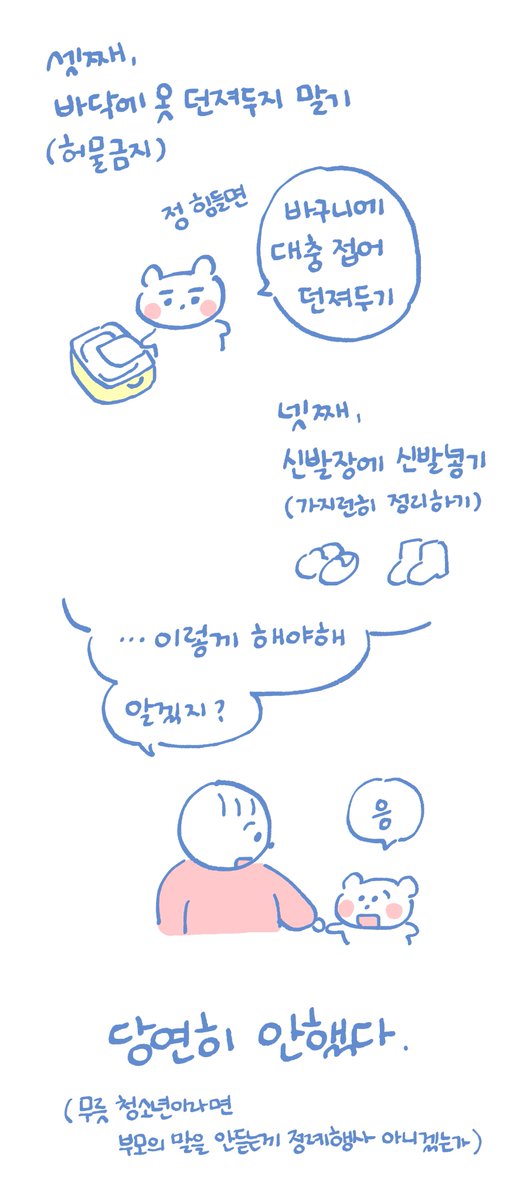 셋째,
바닥에 옷 던져두지 말기
(허물금지)
정 힘들면
바구니에
대충 접어
던져두기
넷째,
신발장에 신발놓기
(가지런히 정리하기)
... 이렇게 해야해
알겠지?
응
당연히 안했다.
(무릇 청소년이라면
부모의 말을 안듣는게 정례행사 아니겠는가)